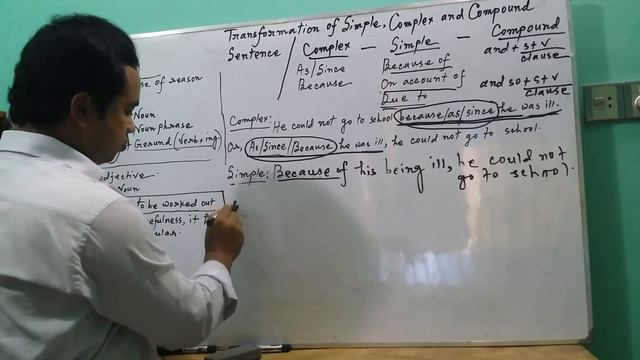 Transformation of Simple, Complex and Compound
Sentence / Complex — Simple — Compound
As/Since Because of and + S + V
clause
Because On account of and so + S + V
Due to clause
Complex: He could not go to school because/as/since he was ill.
Or, As/Since/Because he was ill, he could not go to school.
Simple: Because of his being ill, he could not
go to school.
se of reason
Noun
Noun phrase
Gerund (Verb+ing)
djective
Noun
to be worked out
efulness, it
ular.